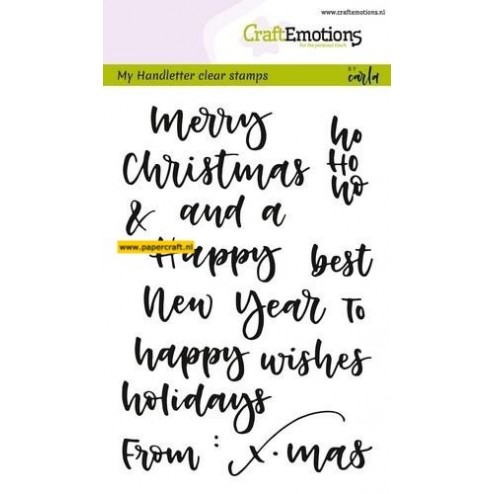 www.craftemotions.nl
CraftEmotions
for the personal touch
My Handletter clear stamps
BY carla
merry
Christmas
ho
Ho
ho
& and a
www.papercraft.nl
Happy best
New Year To
happy wishes
holidays
From : x-mas